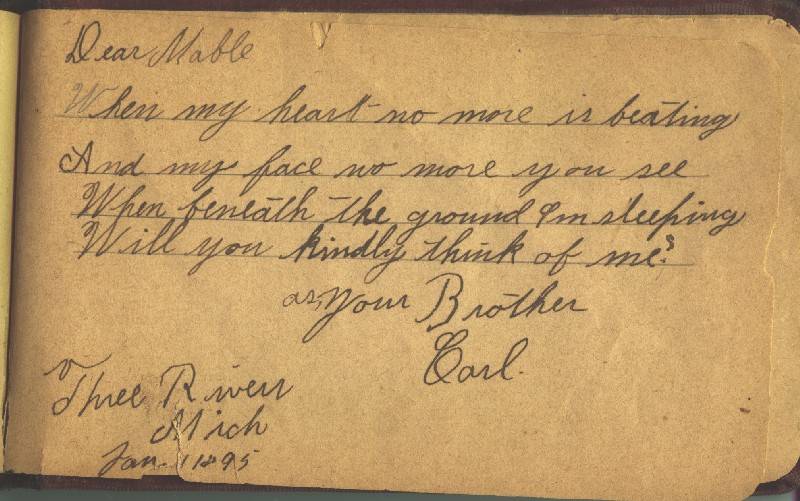 Dear Mable
When my heart no more is beating
And my face no more you see
When beneath the ground I'm sleeping
Will you kindly think of me?
as, Your Brother
Carl.
Three Rivers
Mich
Jan. 1 1895